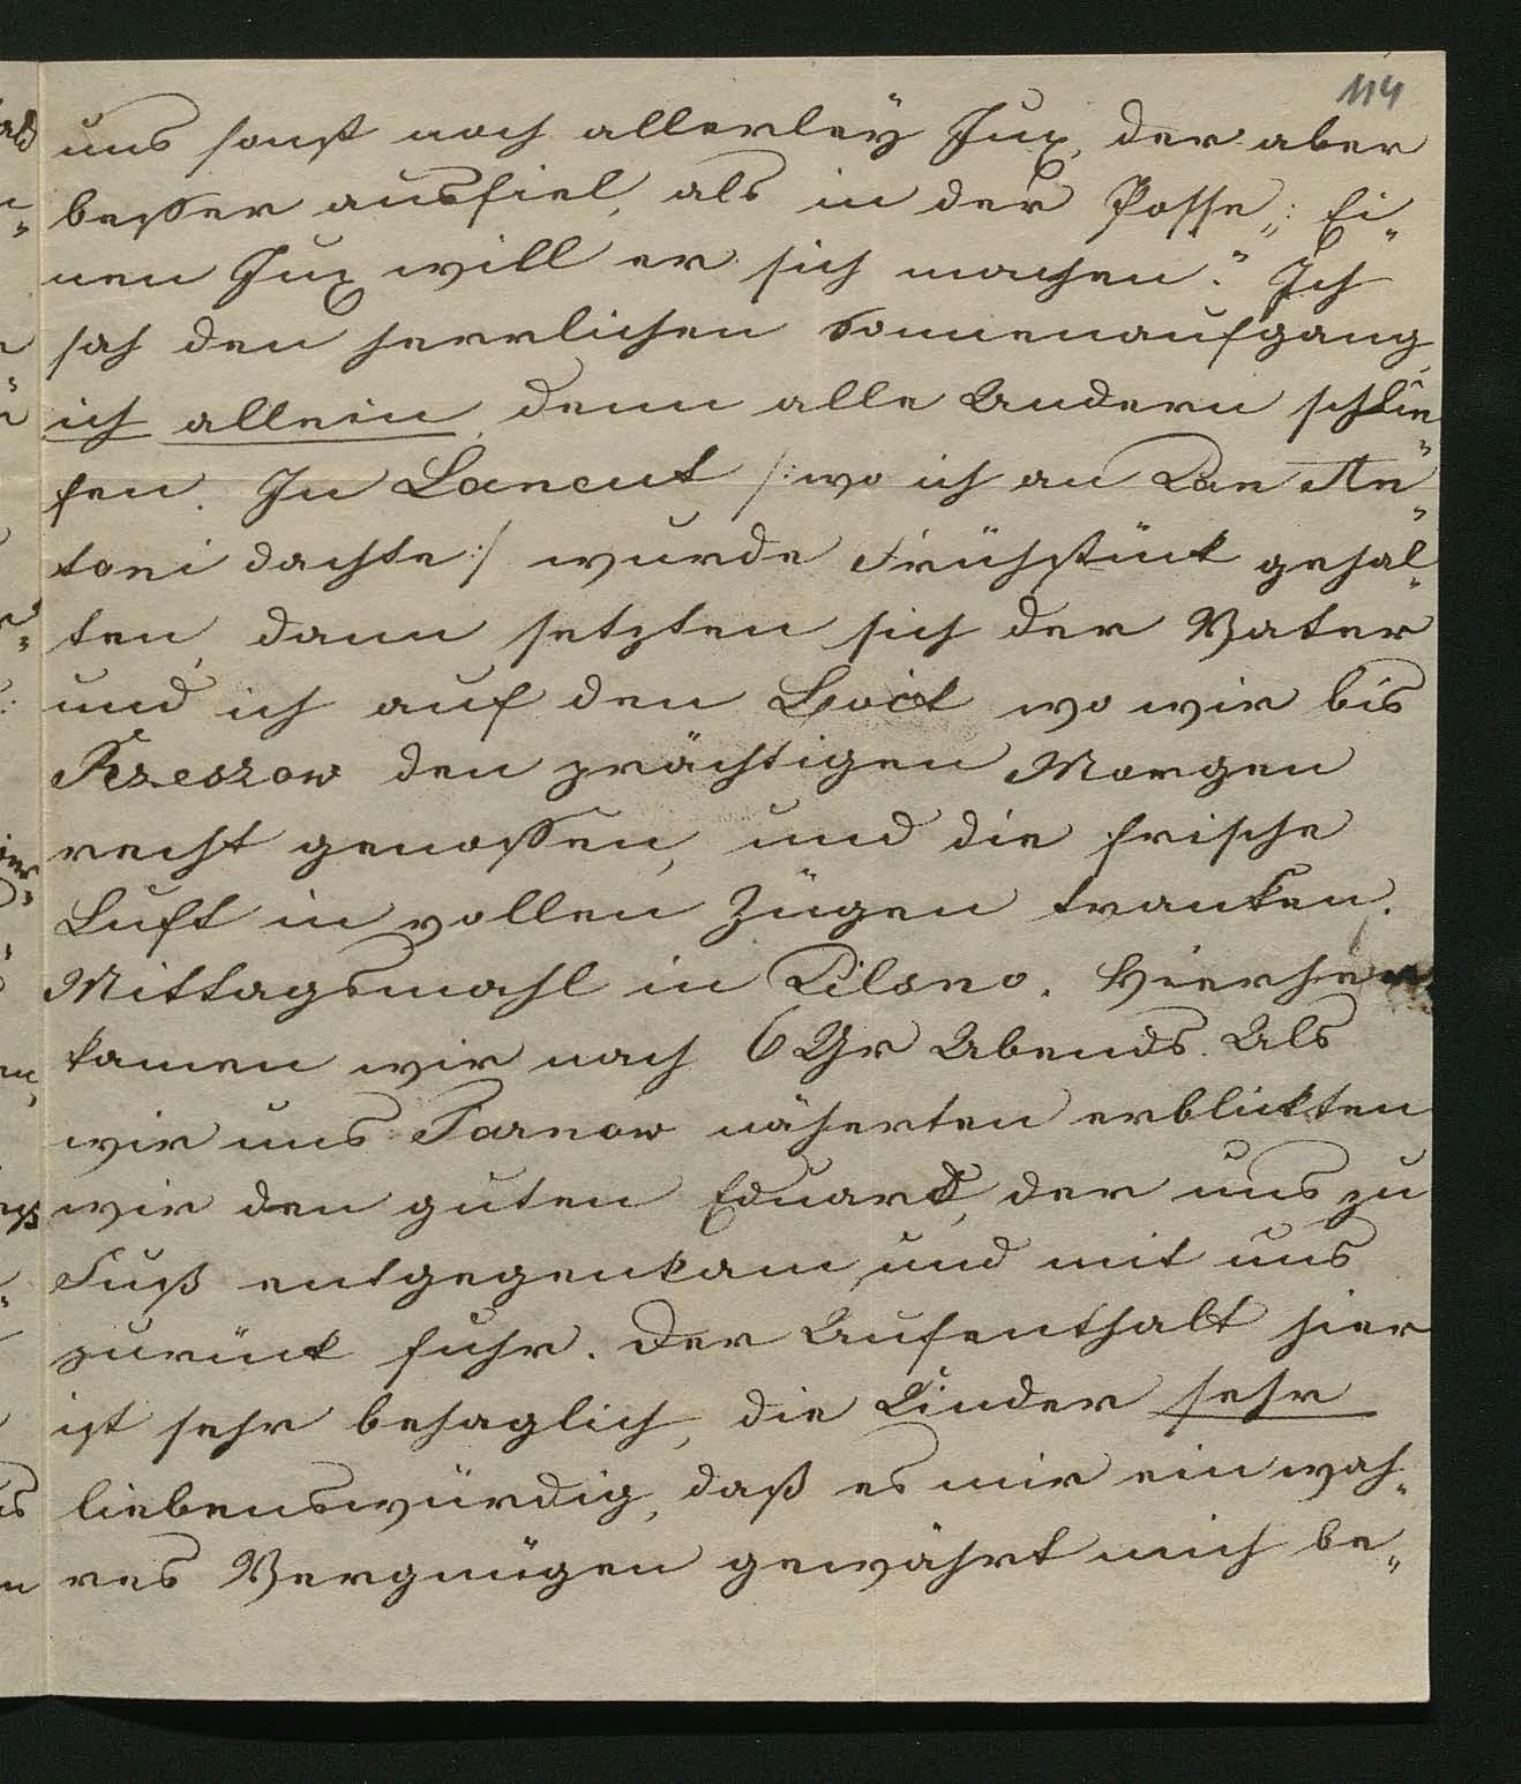 114
uns sonst noch allerley Jux, der aber
besser ausfiel, als in der Posse„: Ei„
nen Jux will er sich machen." Ich
sah den herrlichen Sonnenaufgang,
ich allein, denn alle Andern schlie„
fen. In Lancut /: wo ich an Pan An„
toni dachte :/ wurde Frühstück gehal„
ten, dann setzten sich der Vater
und ich auf den Bock wo wir bis
Rzeszow den prächtigen Morgen
recht genossen, und die frische
Luft in vollen Zügen tranken.
Mittagsmahl in Pilsno. Hierher
kamen wir nach 6 Uhr Abends. Als
wir uns Tarnow näherten erblickten
wir den guten Eduard, der uns zu
Fuß entgegenkam und mit uns
zurück fuhr. Der Aufenthalt hier
ist sehr behaglich, die Kinder sehr
liebenswürdig, daß es mir ein wah„
res Vergnügen gewährt mich be„